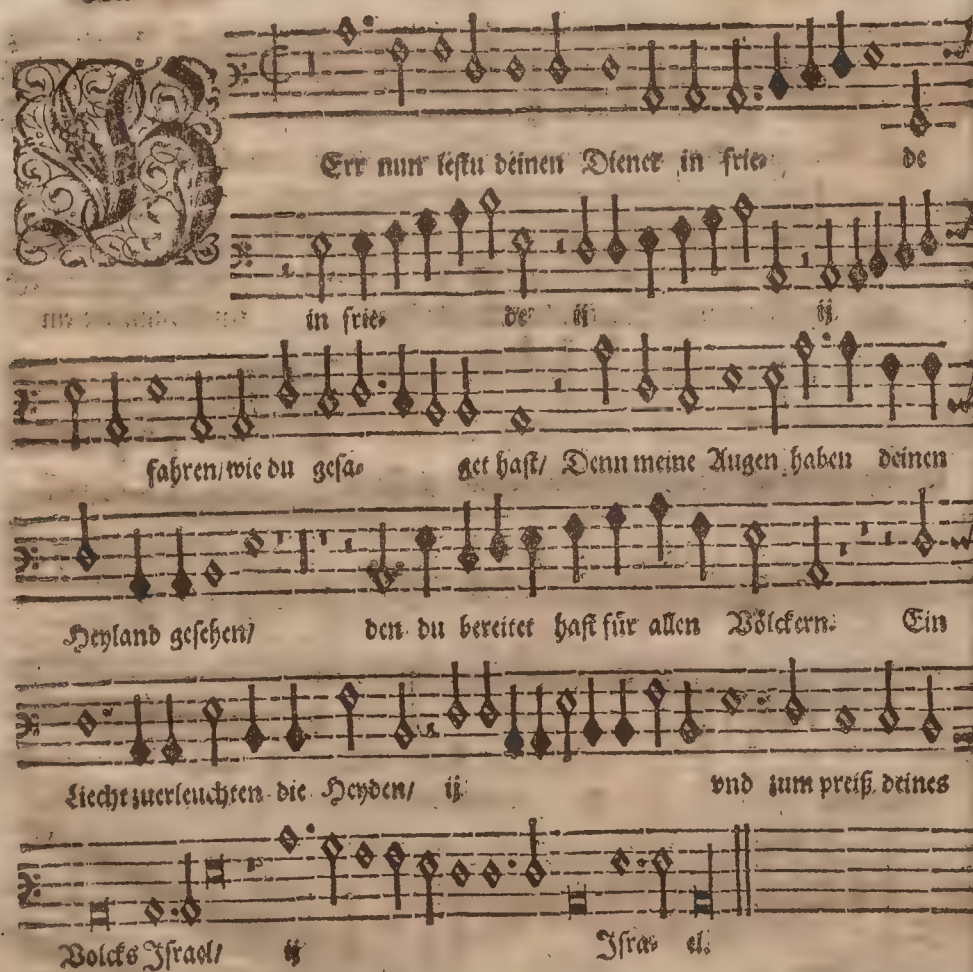 HErr nun lestu deinen Diener in frie- de
in frie- de ij ij
fahren/wie du gesa- get hast/ Denn meine Augen haben deinen
Heyland gesehen/ den du bereitet hast für allen Völckern. Ein
Liecht zuerleuchten die Heyden/ ij vnd zum preiß deines
Volcks Israel/ ij Isra- el.